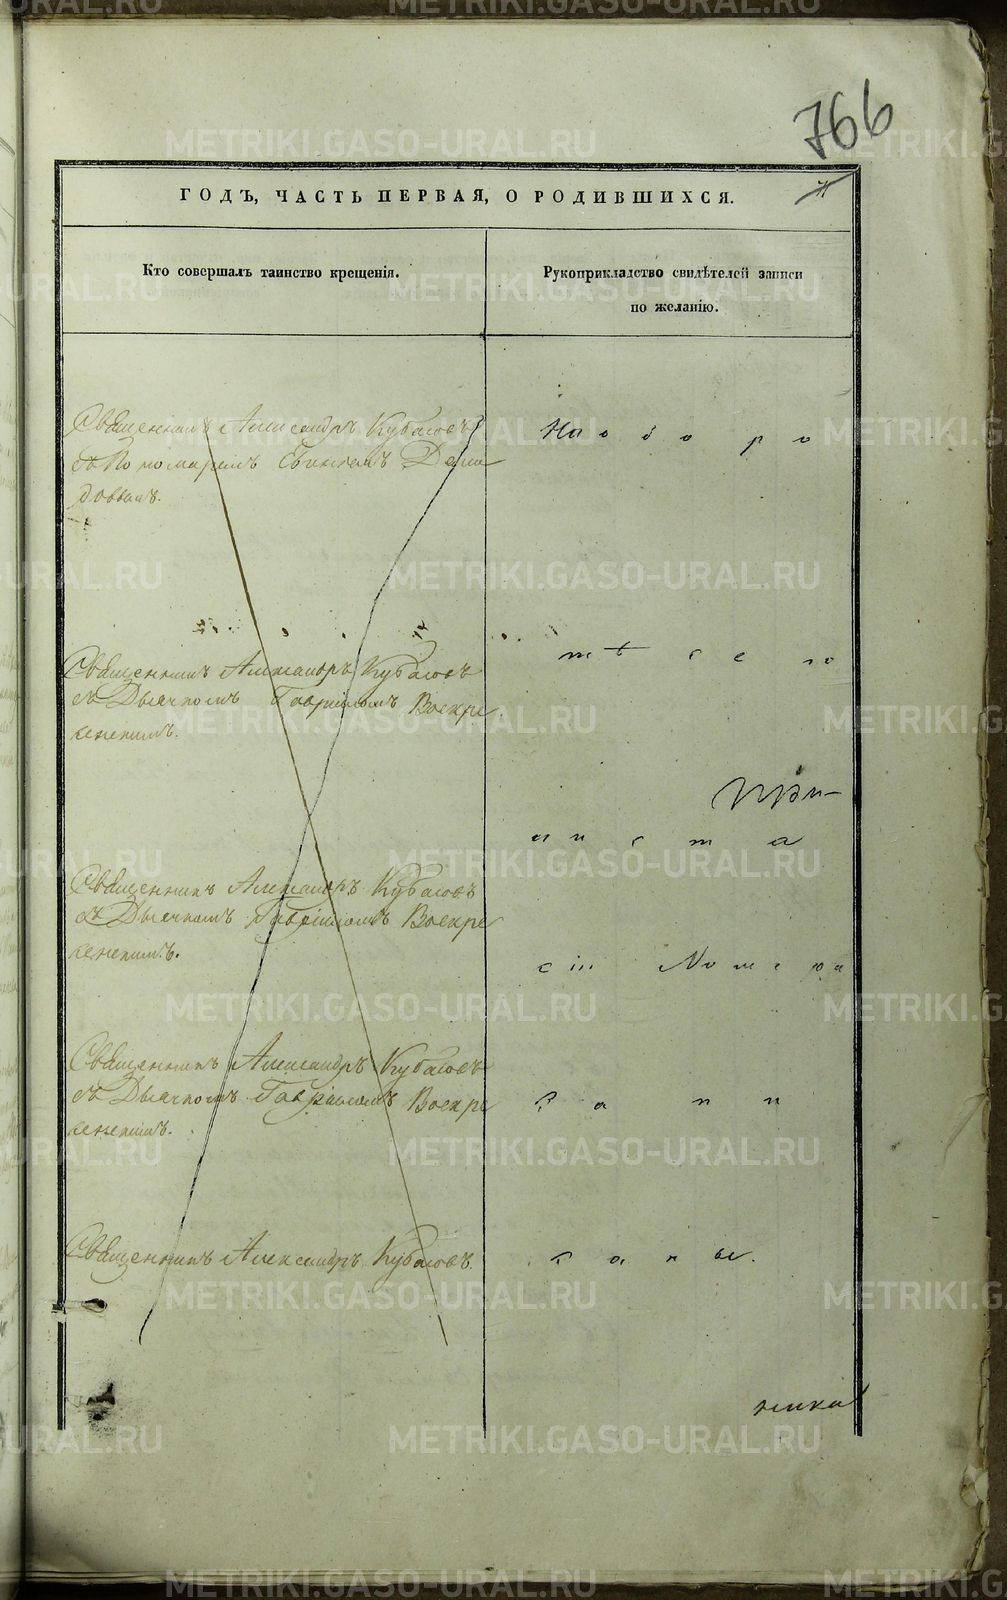 766
ГОДЪ, ЧАСТЬ ПЕРВАЯ, О РОДИВШИХСЯ.
Кто совершалъ таинство крещенія.
Рукоприкладство свидѣтелей записи
по желанію.
Священникъ Александръ Кубасовъ
съ Пономаремъ
На обо ро
Священникъ Александръ Кубасовъ
съ Дьячкомъ Гавріиломъ Воскре
сенскимъ.
тѣ сего
листа
Священникъ Александръ Кубасовъ
съ Дьячкомъ Гавріиломъ Воскре
сенскимъ.
сіи Номера
Священникъ Александръ Кубасовъ
съ Дьячкомъ Гавріиломъ Воскре
сенскимъ.
Священникъ Александръ Кубасовъ.
METRIKI.GASO-URAL.RU